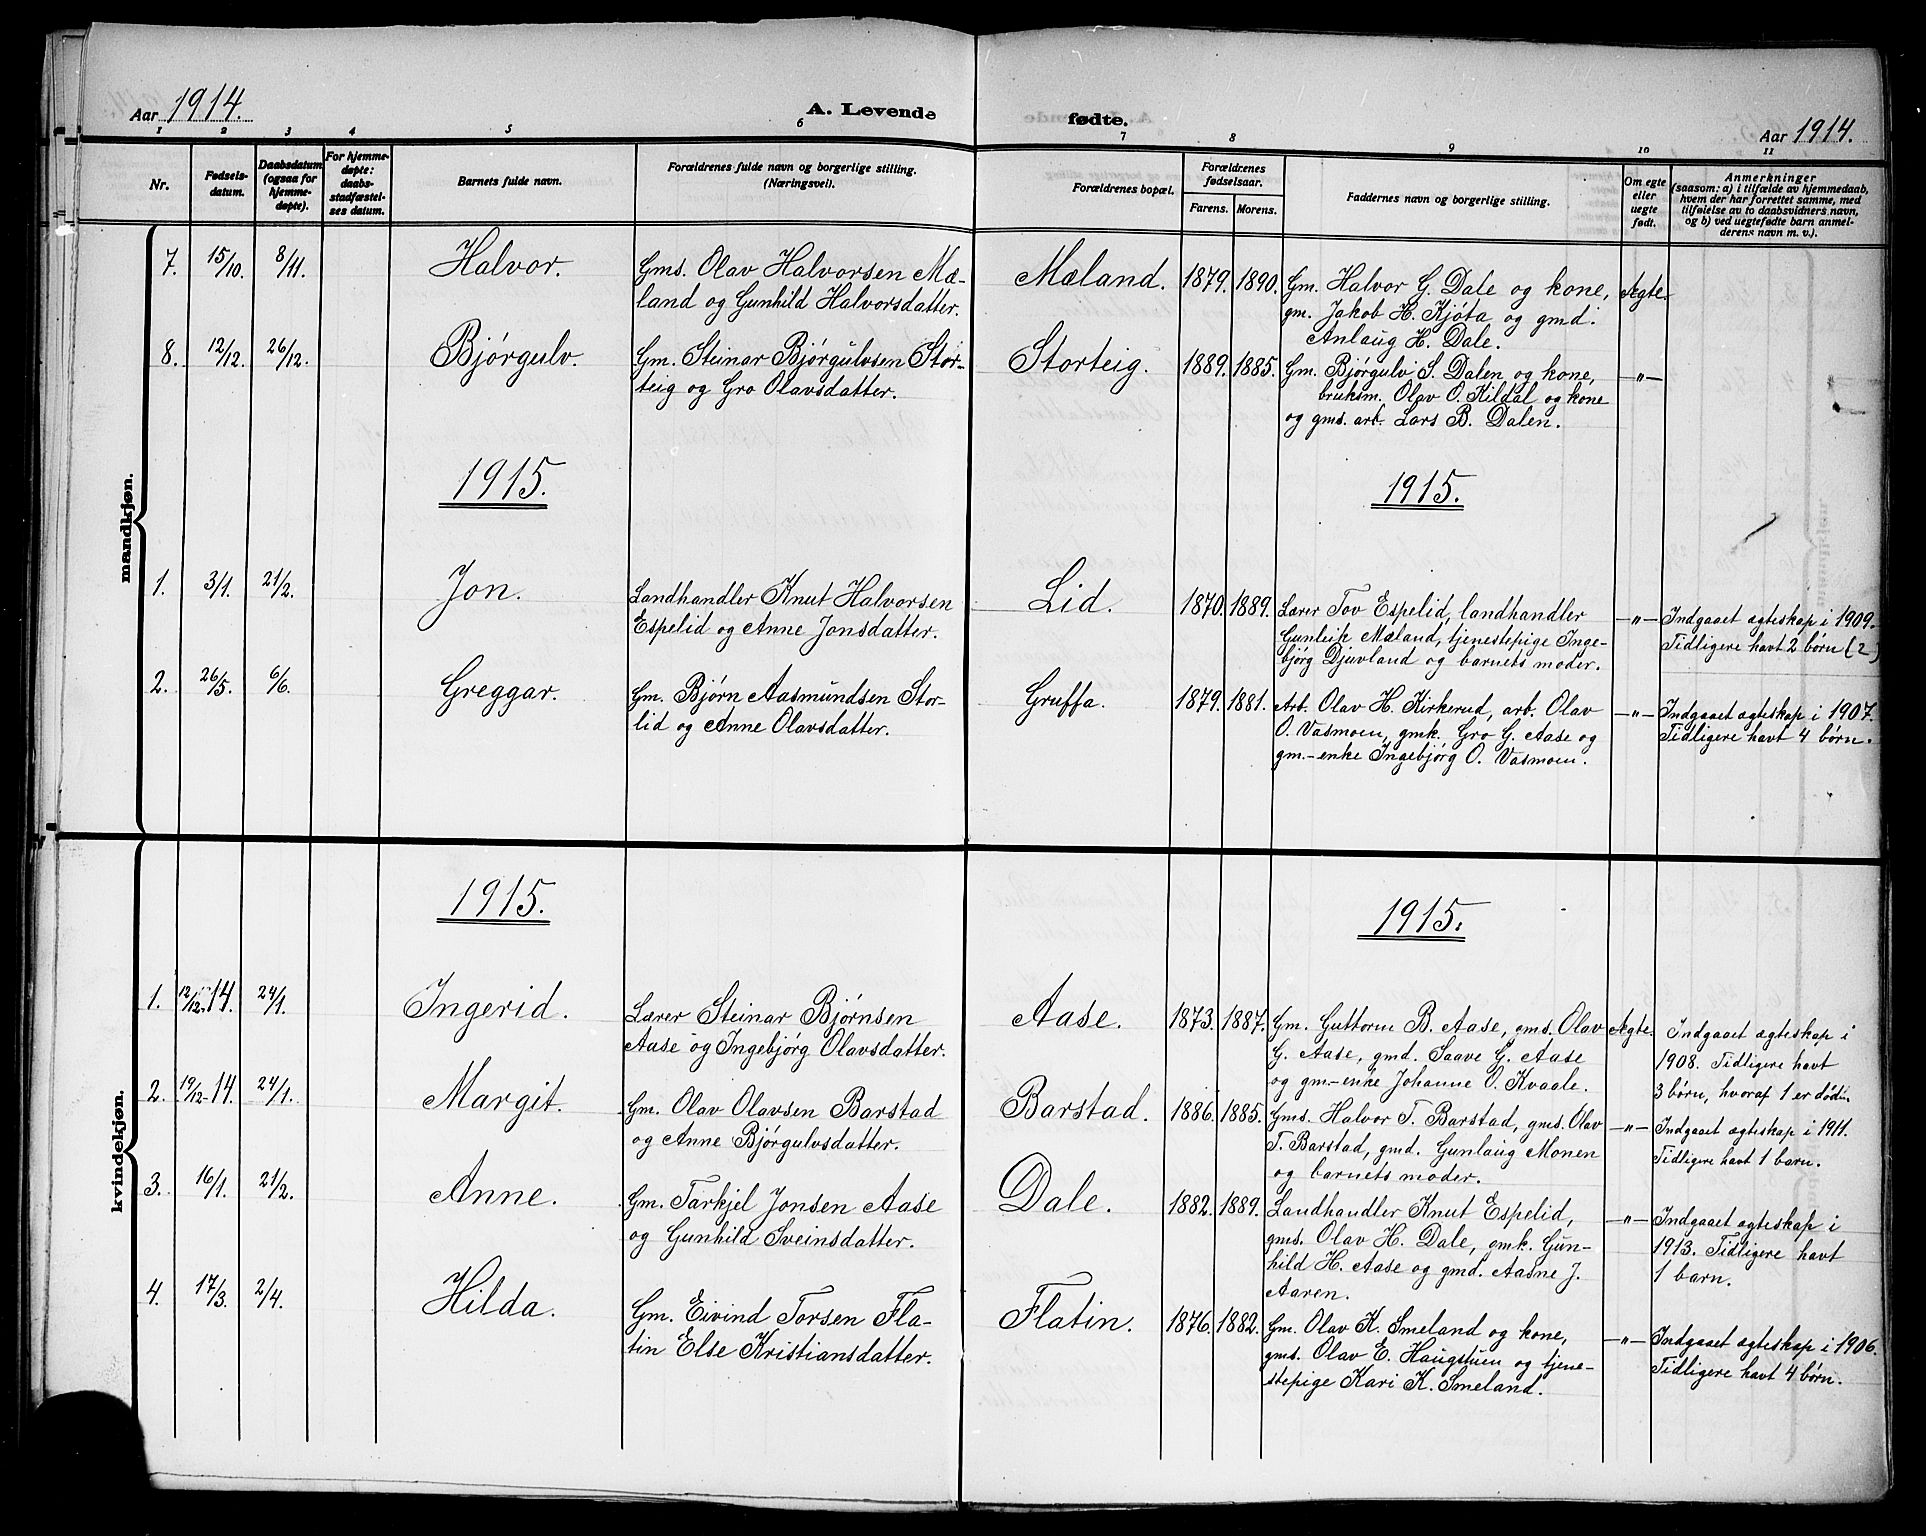 Aar 1914.
A. Levende
fødte.
Aar 1914.
1 2 3 4 5 6 7 8 9 10 11
Nr.
Fødsels-
datum.
Daabsdatum
(ogsaa for
hjemme-
døpte).
For hjemme-
døpte:
daabs-
stadfæstel-
ses datum.
Barnets fulde navn.
Forældrenes fulde navn og borgerlige stilling.
(Næringsvei).
Forældrenes bopæl.
Forældrenes
fødselsaar.
Farens. Morens.
Faddernes navn og borgerlige stilling.
Om egte
eller
uegte
født.
Anmerkninger
(saasom: a) i tilfælde av hjemmedaab,
hvem der har forrettet samme, med
tilføielse av to daabsvidners navn,
og b) ved uegtefødte barn anmel-
derens navn m. v.).
mandkjøn.
7. 15/10. 8/11. Halvor.
Gms. Olav Halvorsen Mæ-
land og Gunhild Halvorsdatter.
Mæland. 1879. 1890.
Gm. Halvor G. Dale og kone,
gm. Jakob H. Kjøta og gmd.
Anlaug H. Dale.
Ægte.
8. 12/12. 26/12. Bjørgulv
Gm. Steinar Bjørgulvsen Stor-
teig og Gro Olavsdatter.
Storteig. 1889. 1885.
Gm. Bjørgulv S. Dalen og kone,
bruksm. Olav O. Kildal og kone
og gms. arb. Lars B. Dalen.
-"-
1915.
1915.
1. 3/1. 21/2. Jon.
Landhandler Knut Halvorsen
Espelid og Anne Jonsdatter.
Lid. 1870. 1889.
Lærer Tov Espelid, landhandler
Gunleik Mæland, tjenestepige Inge-
bjørg Djuvland og barnets moder.
-"-
Indgaaet ægteskap i 1909.
Tidligere havt 2 børn (2)
2. 26/5. 6/6. Greggar.
Gm. Bjørn Aasmundsen Stor-
lid og Anne Olavsdatter.
Gruffa. 1879. 1881.
Arb. Olav H. Kirkerud, arb. Olav
O. Vasmoen, gmk. Gro G. Aase og
gm.-enke Ingebjørg O. Vasmoen.
-"-
Indgaaet ægteskap i 1907.
Tidligere havt 4 børn.
kvindekjøn.
1915.
1915.
1. 12/12. 14. 24/1. Ingerid.
Lærer Steinar Bjørnsen
Aase og Ingebjørg Olavsdatter.
Aase. 1873. 1887.
Gm. Guttorm B. Aase, gms. Olav
G. Aase, gmd. Saave G. Aase
og gm.-enke Johanne O. Kvaale.
Ægte.
Indgaaet ægteskap i
1908. Tidligere havt
3 børn, hvoraf 1 er død.
2. 19/12-14. 24/1. Margit.
Gm. Olav Olavsen Barstad
og Anne Bjørgulvsdatter.
Barstad. 1886. 1885.
Gms. Halvor T. Barstad, gms. Olav
T. Barstad, gmd. Gunlaug Monen
og barnets moder.
-"-
Indgaaet ægteskap i 1911.
Tidligere havt 1 barn.
3. 16/1. 21/2. Anne.
Gm. Tarkjel Jonsen Aase
og Gunhild Sveinsdatter.
Dale. 1882. 1889.
Landhandler Knut Espelid,
gms. Olav H. Dale, gmk. Gun-
hild H. Aase og gmd. Aasne J.
Aaren.
-"-
Indgaaet ægteskap i
1913. Tidligere havt
1 barn.
4. 17/3. 2/4. Hilda.
Gm. Eivind Torsen Fla-
tin Else Kristiansdatter.
Flatin. 1876. 1882.
Gm. Olav K. Smeland og kone,
gms. Olav E. Haugstuen og tjene-
stepige Kari K. Smeland.
-"-
Indgaaet ægteskap i 1906.
Tidligere havt 4 børn.